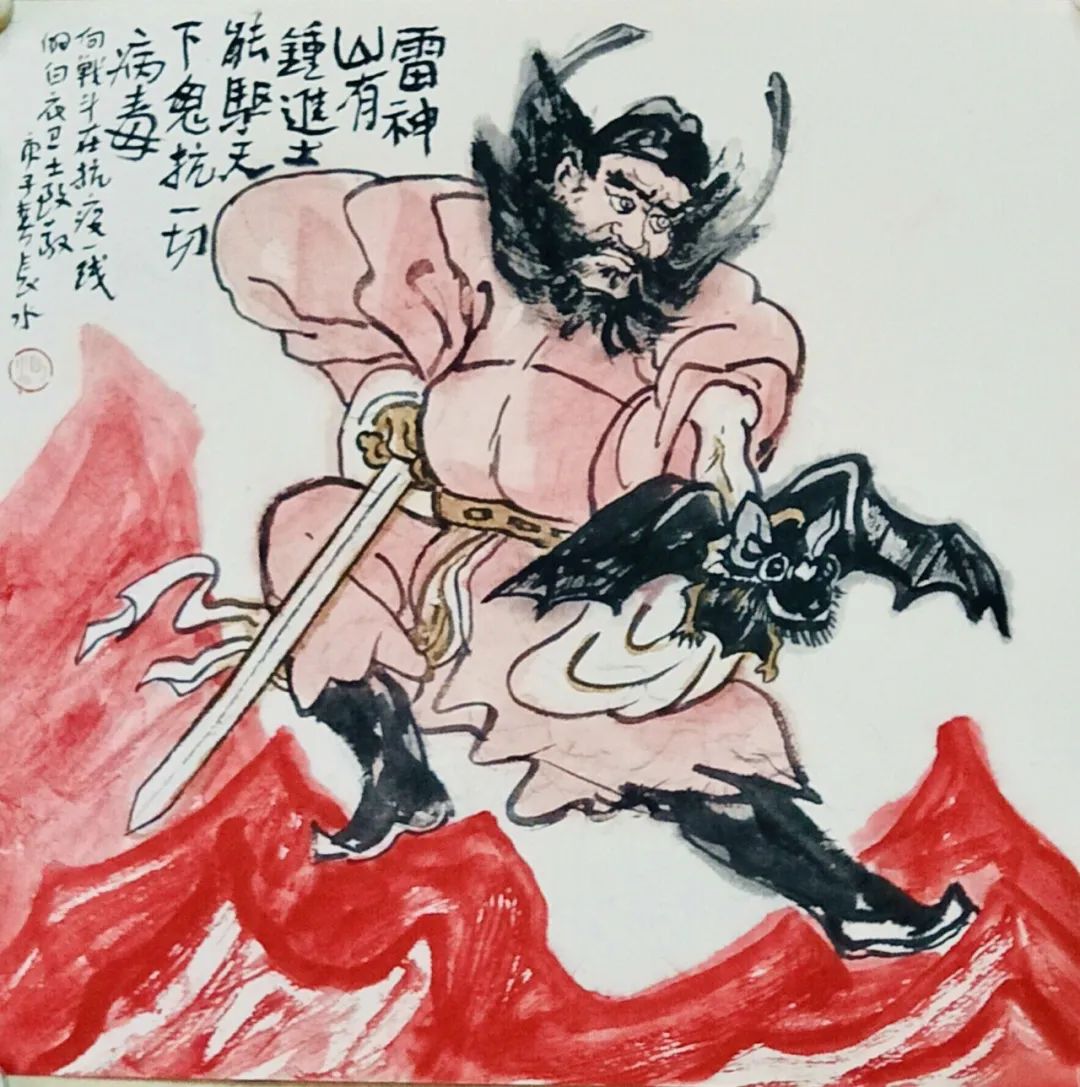 雷神
山有
鍾進士
能驅天
下鬼抗一切
病毒
向戰斗在抗疫一线
的白衣卫士致敬
庚子春长水